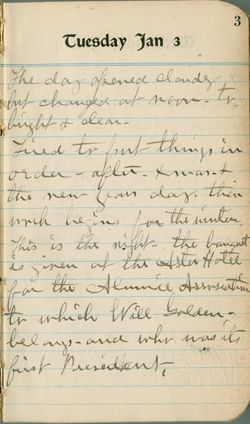 3
Tuesday Jan 3
The day opened cloudy
but changed at noon - to
bright & clear -
Tired to put things in
order - after - Xmas &
the new years day. then
work begins for the winter.
This is the night the banquet
is given at the Astor Hotel
for the Alumnae Association
to which Will Golden -
belongs - and who was its
first President,